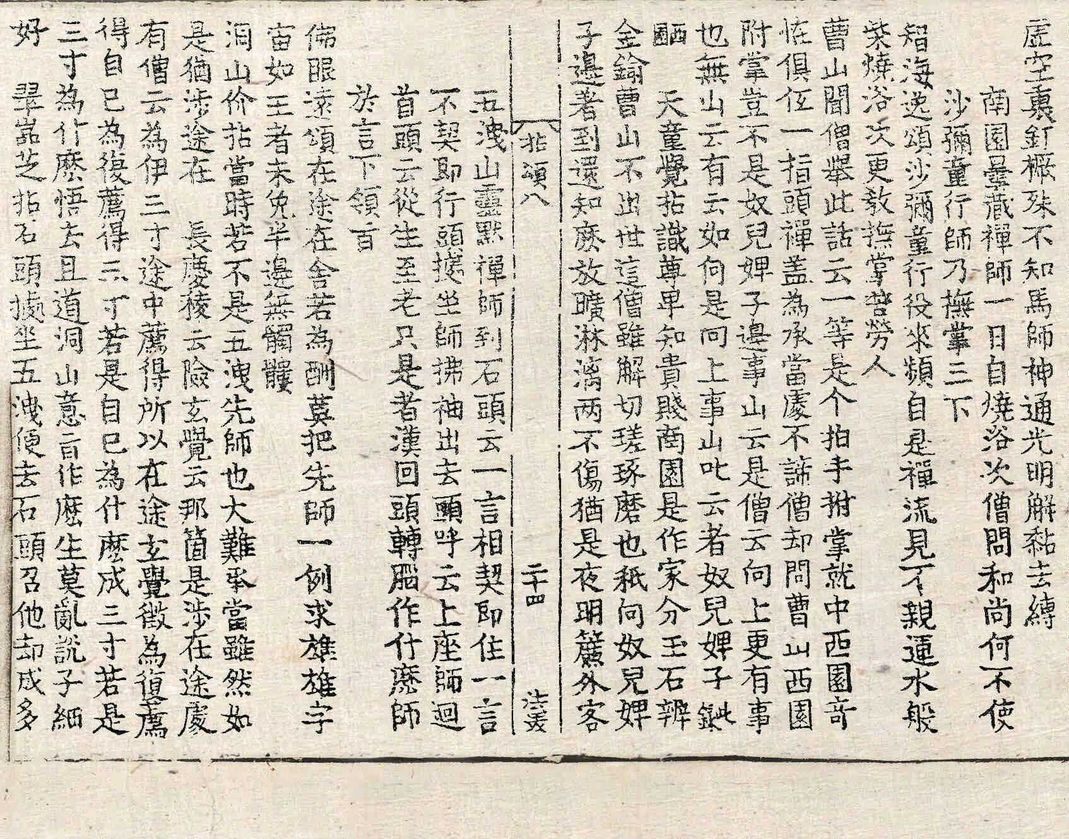 虛空裏釘橛殊不知馬師神通光明解黏去縛
南園曇藏禪師一日自燒浴次僧問和尚何不使
沙彌童行師乃撫掌三下
智海逸頌沙彌童行役來頻自是禪流見不親運水般
柴燒浴次更教撫掌苦勞人
曹山聞僧舉此話云一等是个拍手拊掌就中西園奇
恠俱伍一指頭禪盖為承當處不諦僧却問曹山西園
拊掌豈不是奴兒婢子邊事山云是僧云向上更有事
也無山云有云如何是向上事山叱云者奴兒婢子
天童覺拈識尊卑知貴賤南園是作家分玉石辨
金鍮曹山不出世這僧雖解切瑳琢磨也秪向奴兒婢
子邊著到還知麽放曠淋漓两不傷猶是夜明簾外客
拈頌八 二十四
五洩山靈默禪師到石頭云一言相契即住一言
不契即行頭據坐師拂袖出去頭呼云上座師迴
首頭云從生至老只是者漢回頭轉腦作什麽師
於言下領旨
佛眼遠頌在途在舍若為酬莫把先師一例求雄雄宇
宙如王者未免半邊無髑髏
洞山价拈當時若不是五洩先師也大難承當雖然如
是猶涉途在 長慶稜云險玄覺云那箇是涉在途處
有僧云為伊三寸途中薦得所以在途玄覺徵為復薦
得自已為復薦得三寸若是自已為什麽成三寸若是
三寸為什麽悟去且道洞山意旨作麽生莫亂說子細
好 翠嵓芝拈石頭據坐五洩便去石頭召他却成多